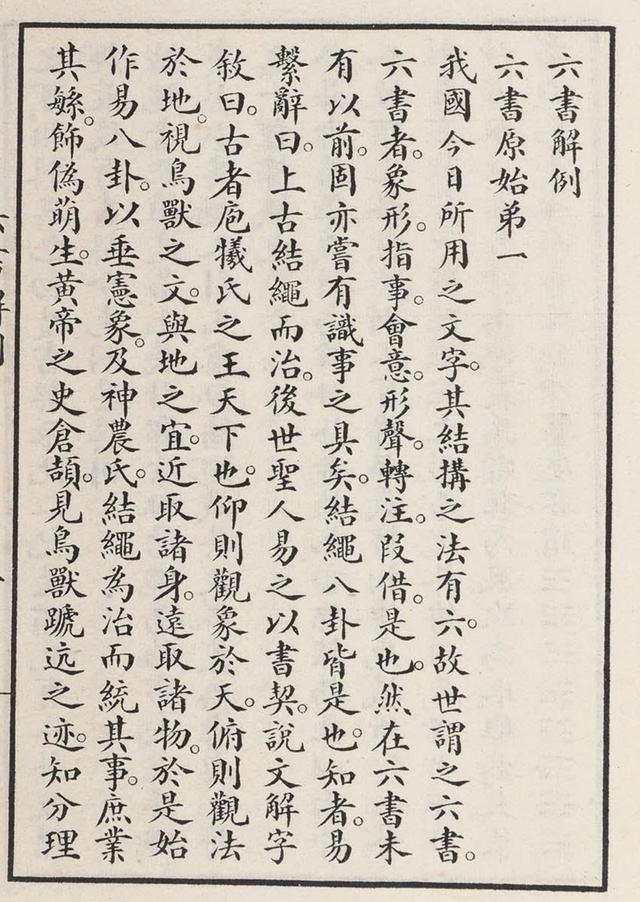 六書解例
六書原始弟一
我國今日所用之文字。其結構之法有六。故世謂之六書。
六書者。象形。指事。會意。形聲。轉注。叚借。是也。然在六書未
有以前。固亦嘗有識事之具矣。結繩八卦皆是也。知者。易
繫辭曰。上古結繩而治。後世聖人易之以書契。說文解字
敘曰。古者庖犧氏之王天下也。仰則觀象於天。俯則觀法
於地。視鳥獸之文。與地之宜。近取諸身。遠取諸物。於是始
作易八卦。以垂憲象。及神農氏。結繩為治而統其事。庶業
其緐。飾偽萌生。黃帝之史倉頡。見鳥獸蹏迒之迹。知分理